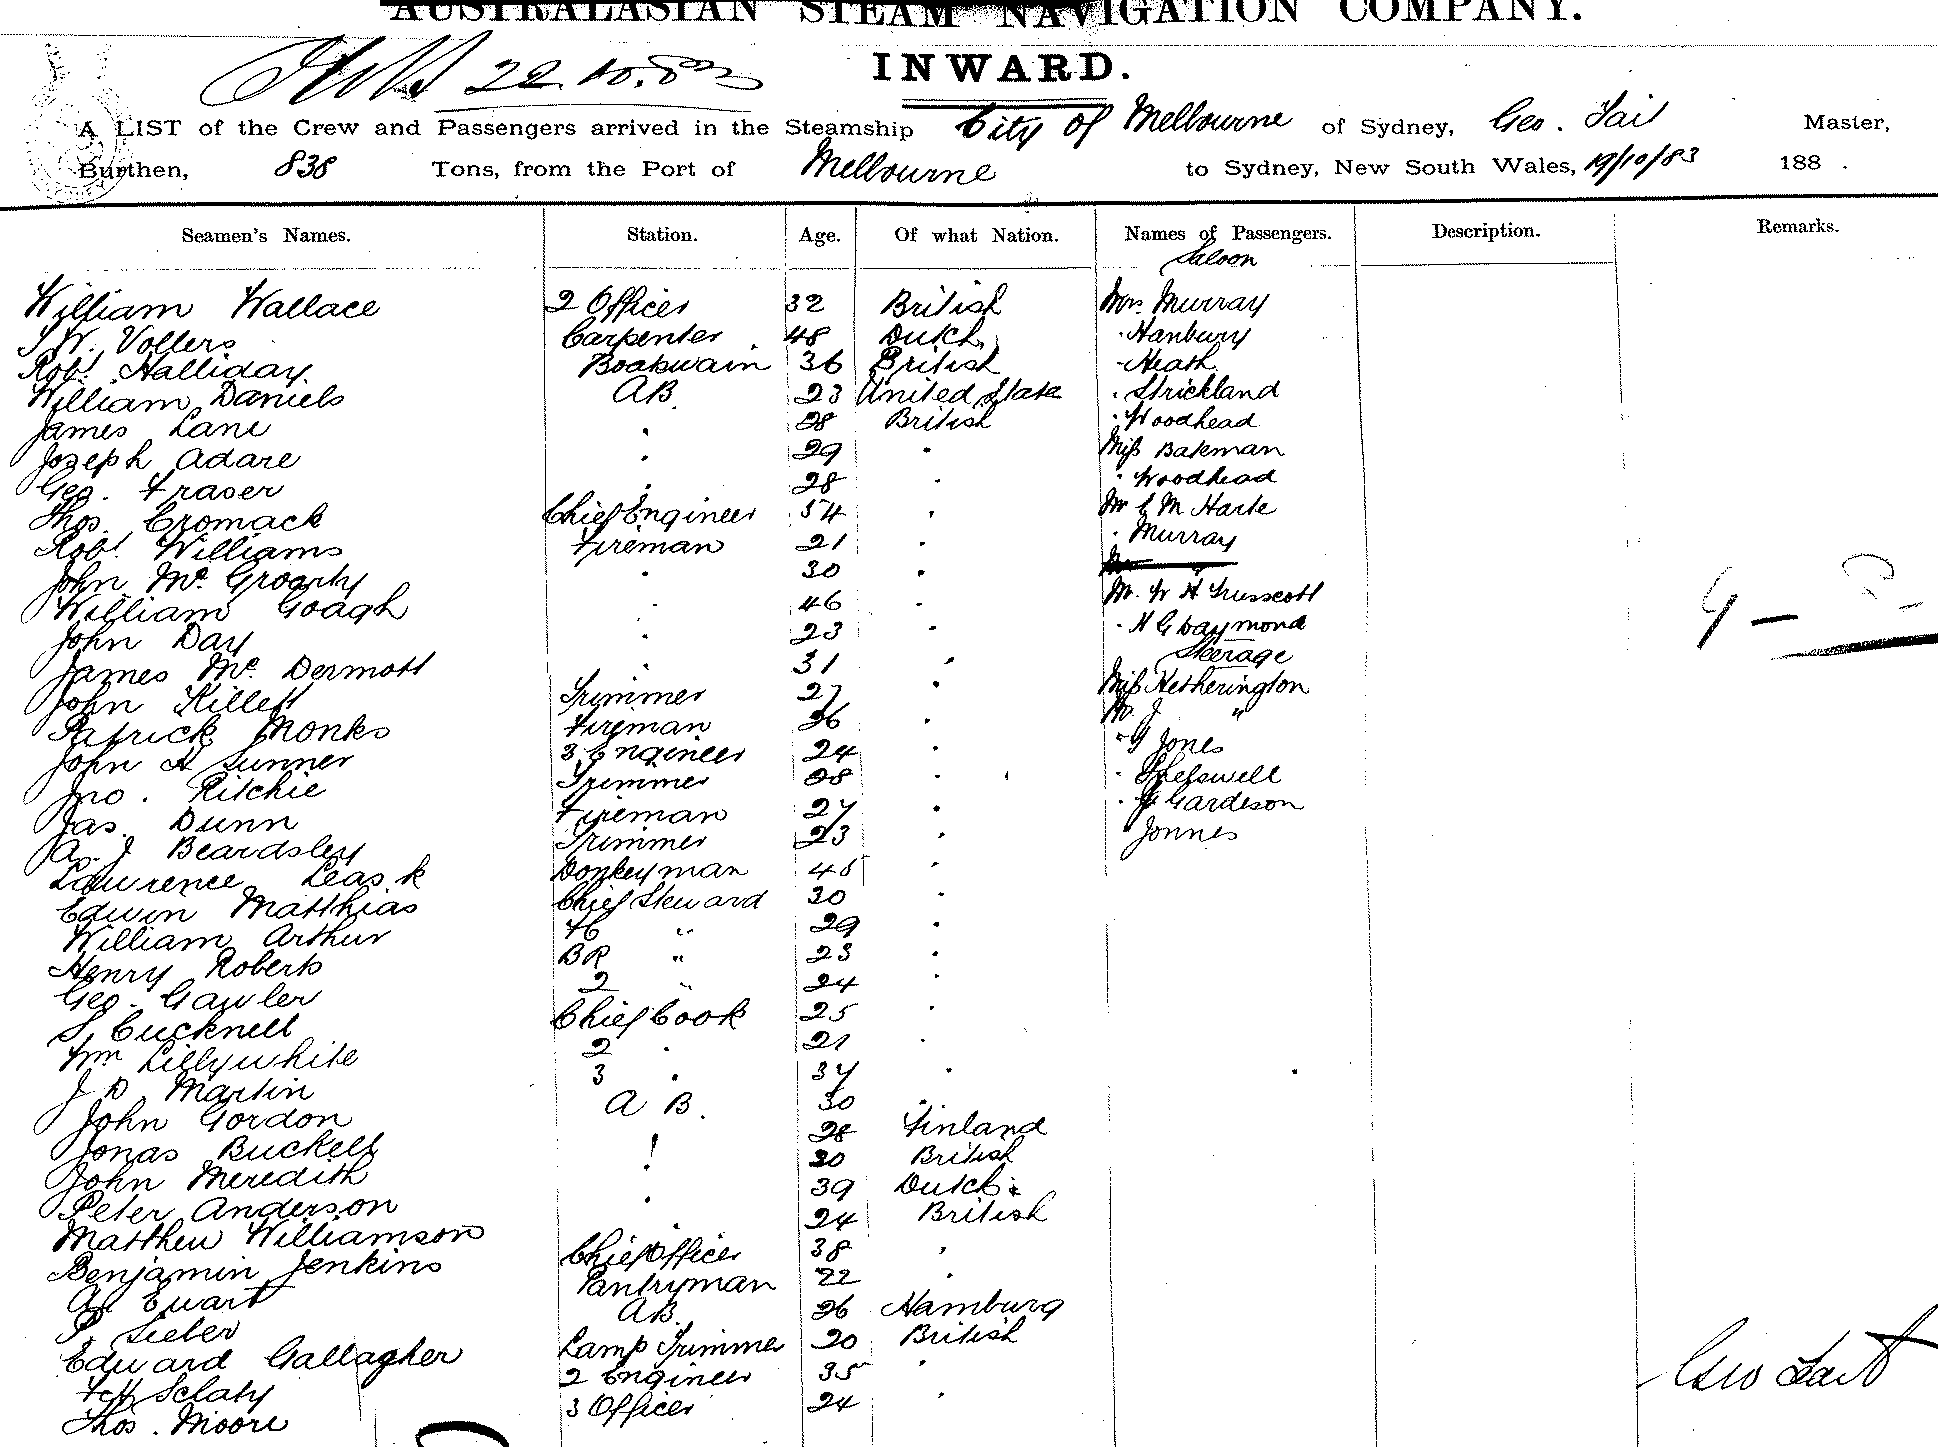 AUSTRALASIAN STEAM NAVIGATION COMPANY.
INWARD.
22.10.83
A LIST of the Crew and Passengers arrived in the Steamship City of Melbourne of Sydney, Geo. Tait Master,
Burthen, 838 Tons, from the Port of Melbourne to Sydney, New South Wales, 19/10/83 188 .
Seamen's Names. Station. Age. Of what Nation. Names of Passengers. Description. Remarks.
Saloon
William Wallace 2 Officer 32 British Mrs. Murray
J.W. Vollers Carpenter 48 Dutch " Hanbury
Robt. Halliday Boatswain 36 British " Heath
William Daniels AB 23 United State " Strickland
James Lane " 28 British " Woodhead
Joseph Adare " 29 " Miss Bateman
Geo. Fraser " 28 " " Woodhead
Thos. Cromack Chief Engineer 54 " Mr C M Harte
Robt. Williams Fireman 21 " " Murray
John Mc. Groarty " 30 "
William Goagh " 46 " Mr. W H Trusscott
John Day " 23 " " H G Daymond
Steerage
James Mc Dermott " 31 " Miss Hetherington
John Killett Trimmer 27 " Mr. J "
Patrick Monks Fireman 36 " " G Jones
John H Sunner 3 Engineer 24 "
Jno. Ritchie Trimmer 28 " " J Gardeson
Jas. Dunn Fireman 27 " " Jonnes
A. J Beardsley Trimmer 23 "
Lawrence Leask Donkeyman 45 "
Edwin Matthias Chief Steward 30 "
William Arthur " 29 "
Henry Roberts BR " 23 "
Geo. Gawler 2 " 24 "
S, Cucknell Chief Cook 25 "
Wm Lillywhite 2 " 21 "
J D Martin 3 " 37 "
John Gordon A B. 30 "
Jonas Buckell " 28 Finland
John Meredith " 20 British
Peter Anderson " 39 Dutch
Matthew Williamson " 24 British
Benjamin Jenkins Chief Officer 38 "
A. Ewart Pantryman 22 "
P. Sieber AB. 26 Hamburg
Edward Gallagher Lamp Trimmer 20 British
Sclaty 2 Engineer 35 "
Thos. Moore 3 Officer 24 "
Geo Tait